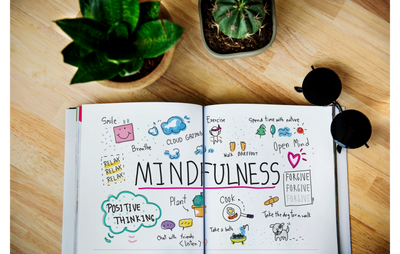 Smile
Exercise
Spend time with nature
CLOUD GAZING
Breathe
Open Mind
WALK BAREFOOT
RELAX
RELAX
RELAX
MINDFULNESS
FORGIVE
FORGIVE
FORGIVE
Plant
Cook
POSITIVE
THINKING
Take the dog for a walk
Chat with friends
(listen)
Take a bath